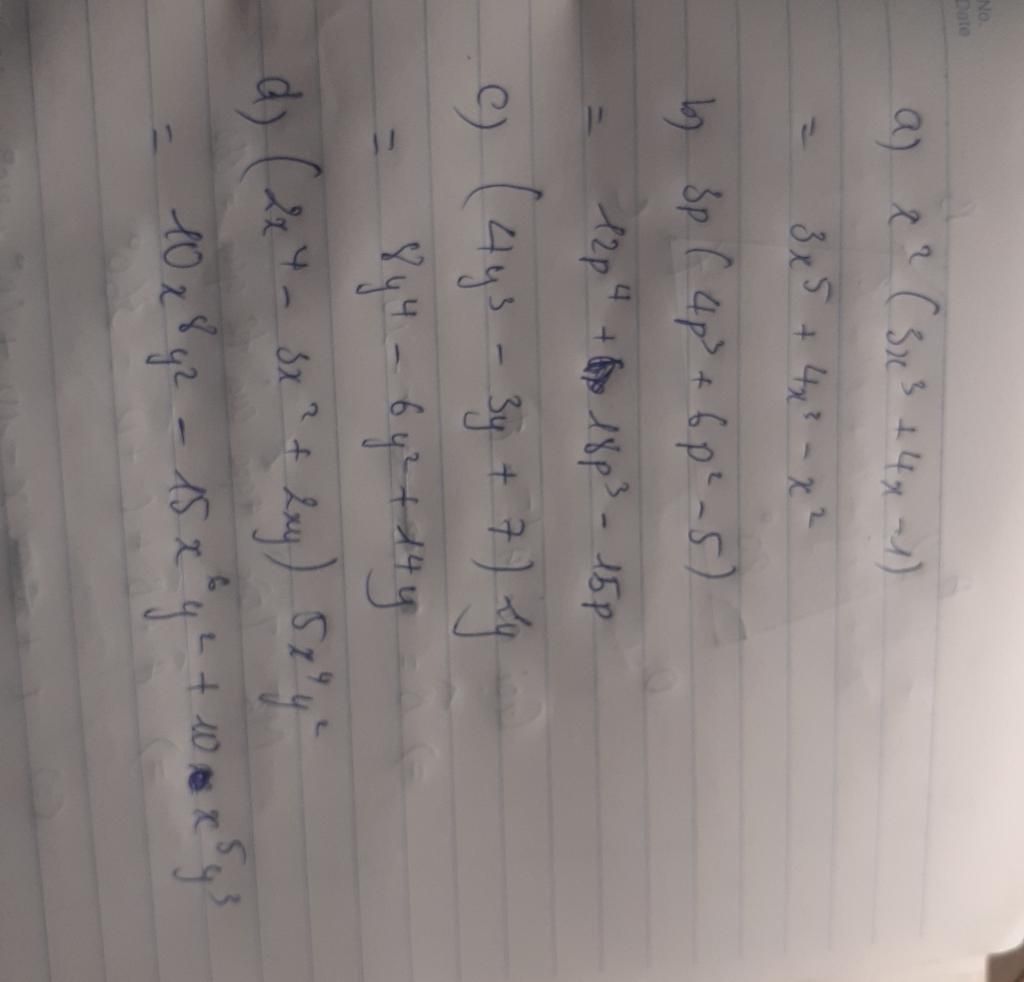 No.
Date
a) x² (3x³ + 4x - 1)
= 3x⁵ + 4x³ - x²
b) 3p (4p³ + 6p² - 5)
= 12p⁴ + 18p³ - 15p
c) (4y³ - 3y + 7) 2y
= 8y⁴ - 6y² + 14y
d) (2x⁴ - 3x² + 2xy) 5x⁴y²
= 10x⁸y² - 15x⁶y² + 10x⁵y³